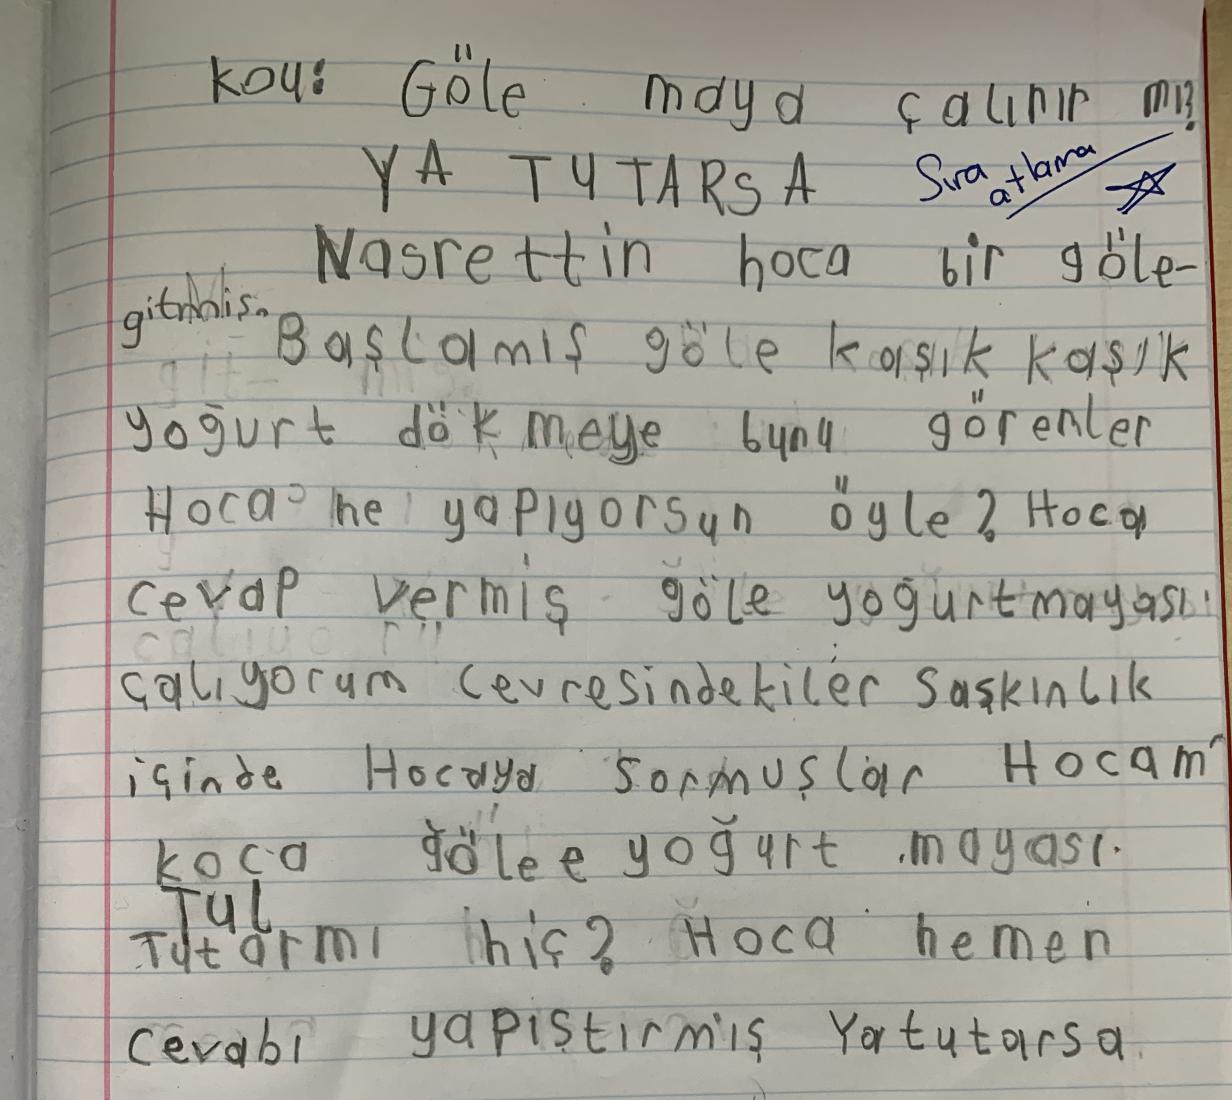 kou: Göle maya çalınır mı?
YA TUTARSA
Sıra atlama
Nasrettin hoca bir göle-
gitmiş.
Başlamış göle kaşık kaşık
yoğurt dökmeye bunu görenler
Hoca ne yapıyorsun öyle? Hoca
cevap vermiş göle yoğurtmayası
çalıyorum cevresindekiler saşkınlık
içinde Hocaya sormuşlar Hocam
koca gölee yoğurt mayası.
Tutarmı hiç? Hoca hemen
cevabı yapiştırmış Yatutarsa.